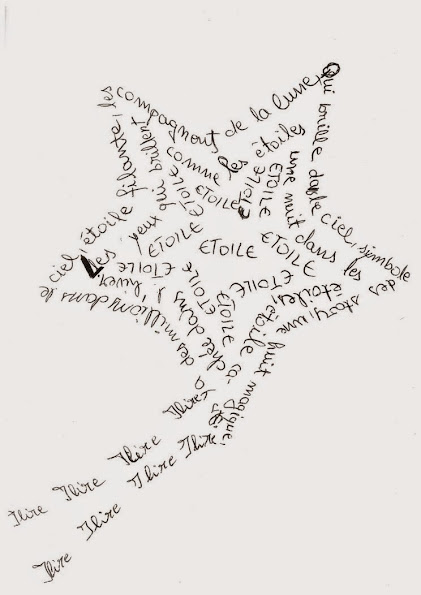 les compagnont de la lune,
Qui brille dans le ciel, symbole
des
une nuit magique,
des millions dans le
ciel, l'étoile filante,
Les yeux qui brillent
comme les étoiles
une nuit dans les
étoiles, étoile ca-
chée dans l'hiver
ETOILE
ETOILE
ETOILE
ETOILE
ETOILE
ETOILE
ETOILE
ETOILE
ETOILE
ETOILE
ETOILE
Ilire Ilire Ilire Ilire
Ilire Ilire Ilire Ilire